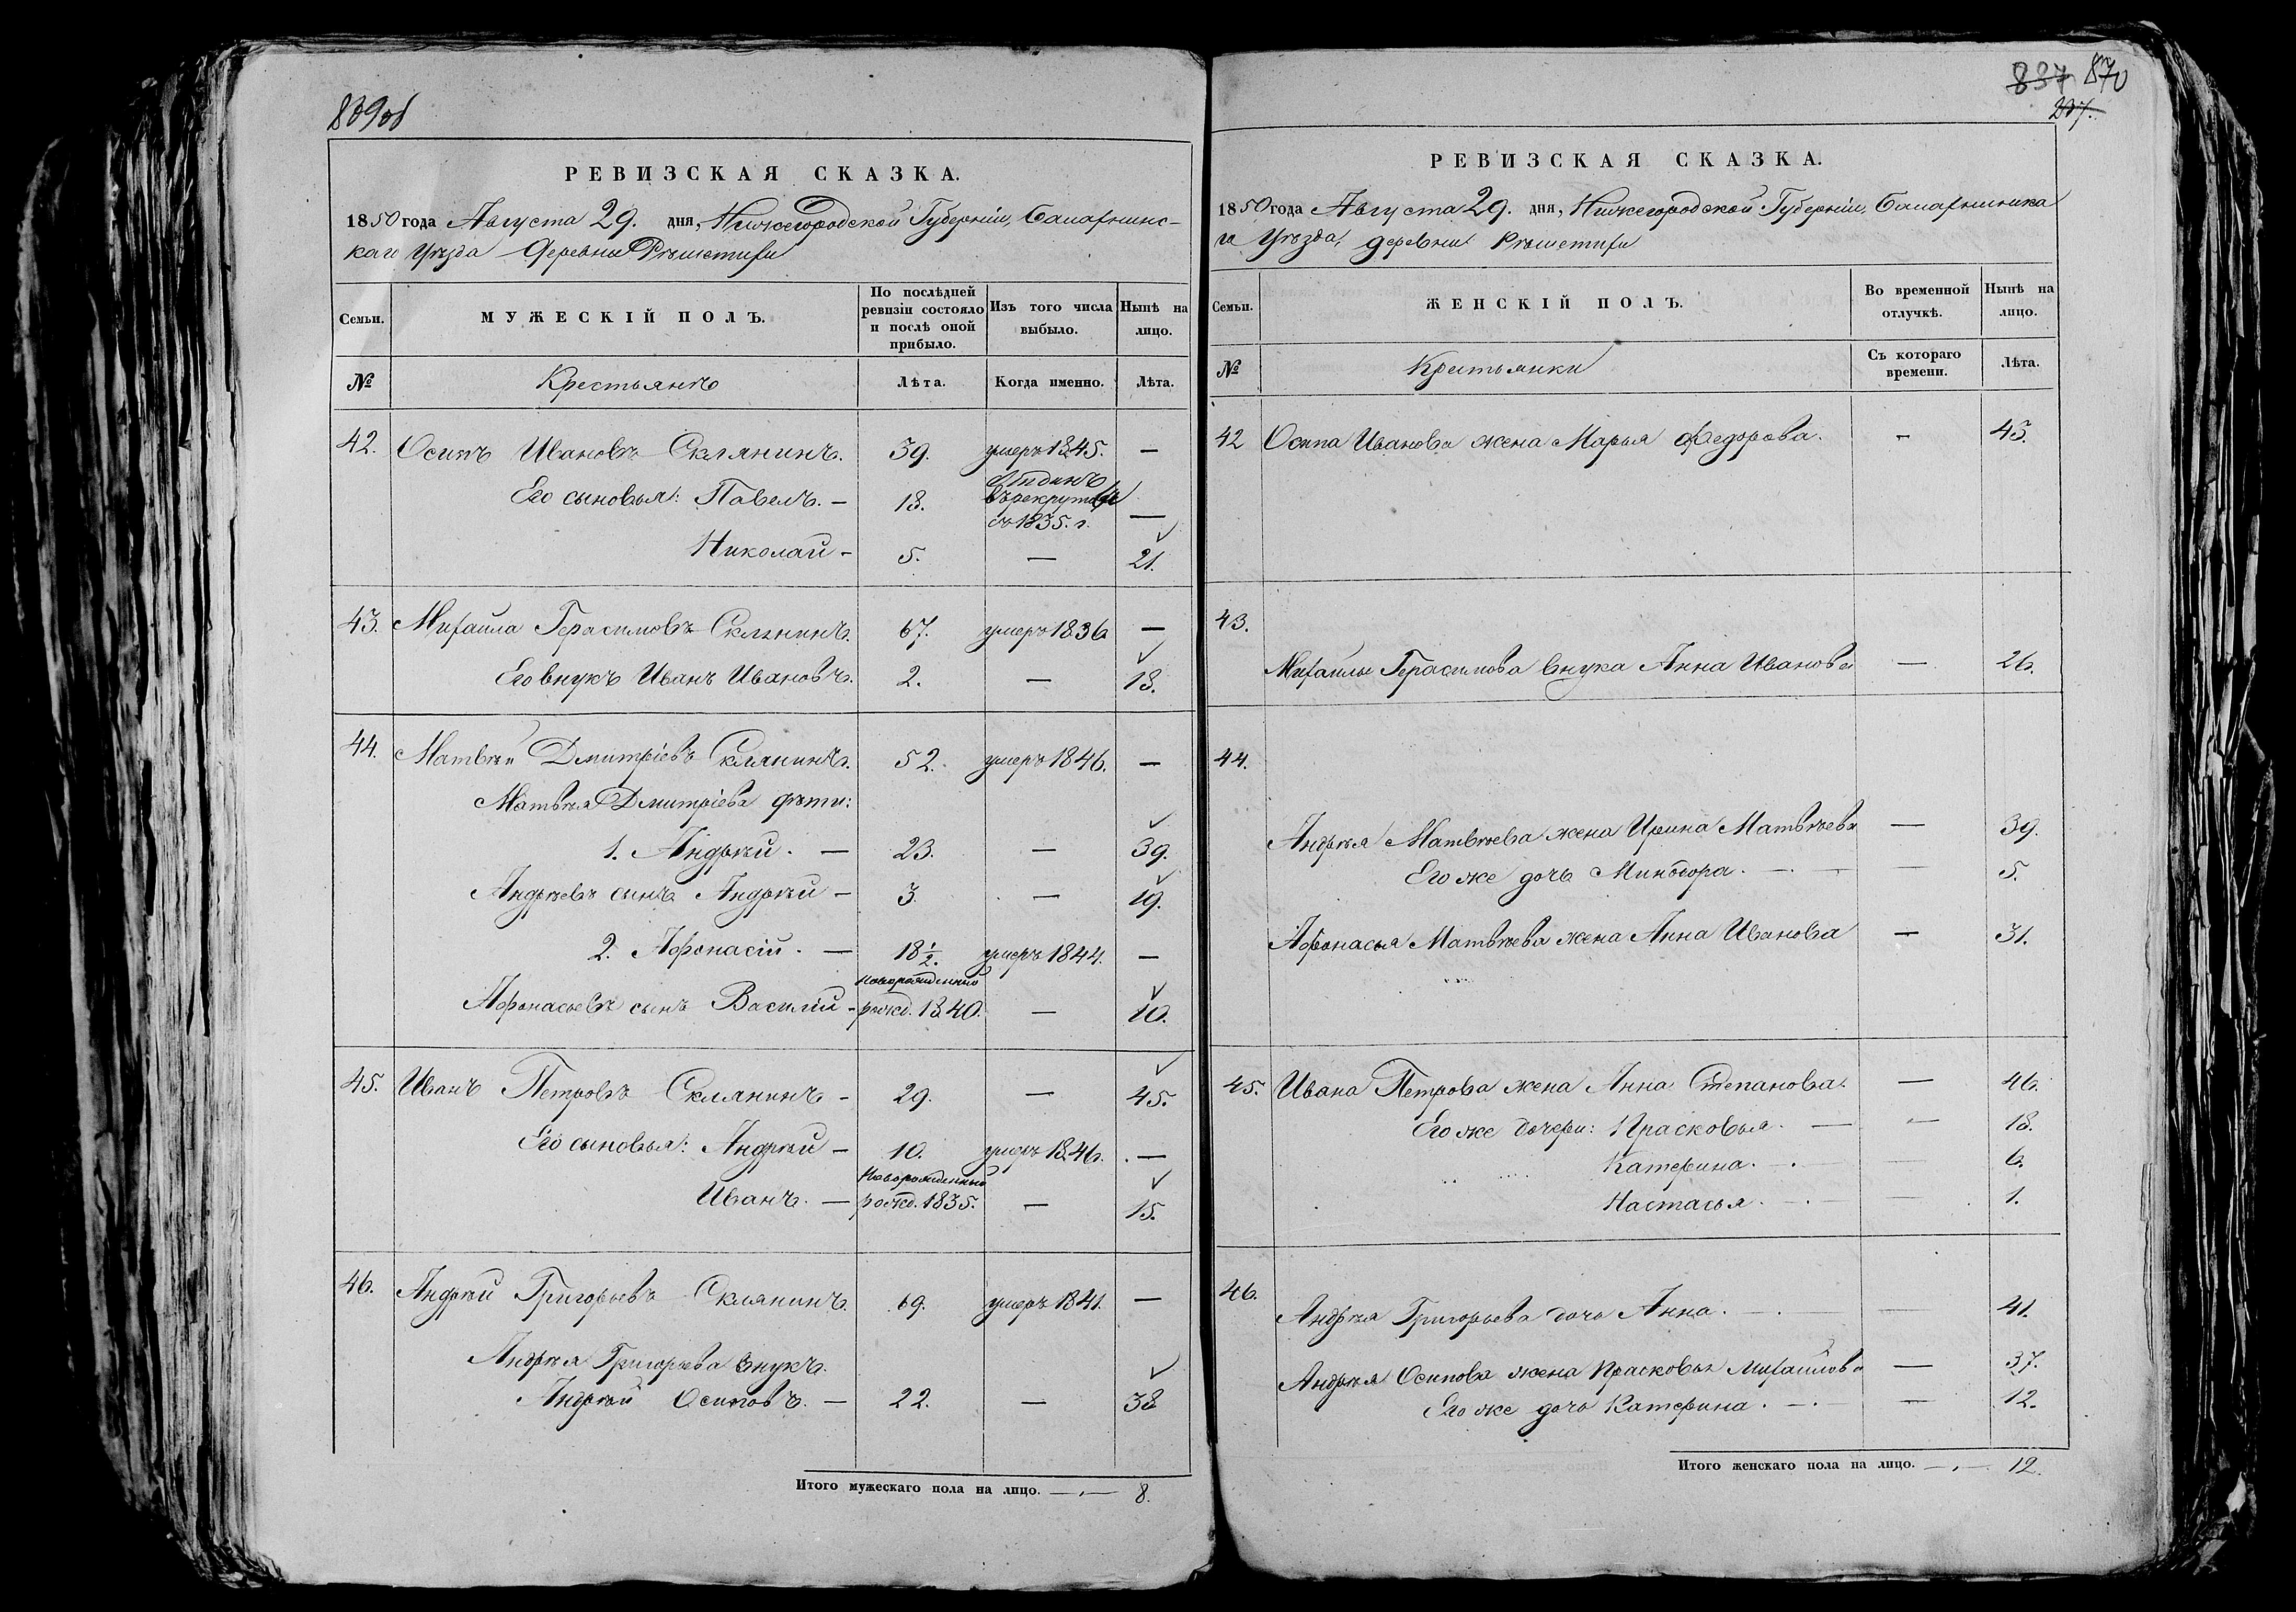 839об
РЕВИЗСКАЯ СКАЗКА.
1850 года Августа 29. дня, Нижегородской Губерніи, Балахнинс-
каго Уѣзда Деревни Рѣшетихи
Семьи. МУЖЕСКІЙ ПОЛЪ. По послѣдней ревизіи состояло и послѣ оной прибыло. Изъ того числа выбыло. Нынѣ на лицо.
№ Крестьянъ Лѣта. Когда именно. Лѣта.
42. Осипъ Ивановъ Склянинъ. 39. умеръ 1845. —
Его сыновья: Павелъ. — 18. отданъ въ рекруты съ 1835. г. —
Николай — 5. — 21.
43. Михайла Герасимовъ Склянинъ. 67. умеръ 1836 —
Его внукъ Иванъ Ивановъ. 2. — 18.
44. Матвѣй Дмитріевъ Склянинъ. 52. умеръ 1846. —
Матвѣя Дмитріева дѣти:
1. Андрѣй. — 23. — 39.
Андрѣевъ сынъ Андрѣй — 3. — 19.
2. Афонасій. — 18 1/2. умеръ 1844. —
Афонасьевъ сынъ Василій — новорожденный рожд. 1840. — 10.
45. Иванъ Петровъ Склянинъ — 29. — 45.
Его сыновья: Андрѣй — 10. умеръ 1846. —
Иванъ. — новорожденный рожд. 1835. — 15.
46. Андрѣй Григорьевъ Склянинъ. 69. умеръ 1841. —
Андрѣя Григорьева внукъ.
Андрѣй Осиповъ. — 22. — 38
Итого мужескаго пола на лицо. — 8.
837 870
РЕВИЗСКАЯ СКАЗКА.
1850 года Августа 29. дня, Нижегородской Губерніи, Балахнинска
го Уѣзда, деревни Рѣшетихи
Семьи. ЖЕНСКІЙ ПОЛЪ. Во временной отлучкѣ. Нынѣ на лицо.
№ Крестьянки Съ котораго времени. Лѣта.
42 Осипа Иванова жена Марья Федорова. — 45.
43.
Михайлы Герасимова внука Анна Иванова — 26.
44.
Андрѣя Матвѣева жена Ирина Матвѣева — 39.
Его же дочь Минодора. — 5.
Афонасья Матвѣева жена Анна Иванова — 31.
45. Ивана Петрова жена Анна Степанова. — 46.
Его же дочери: Прасковья. — 18.
Катерина. — 6.
Настасья. — 1.
46.
Андрѣя Григорьева дочь Анна. — 41.
Андрѣя Осипова жена Прасковья Михайлова — 37.
Его же дочь Катерина. — 12.
Итого женскаго пола на лицо. — 12.